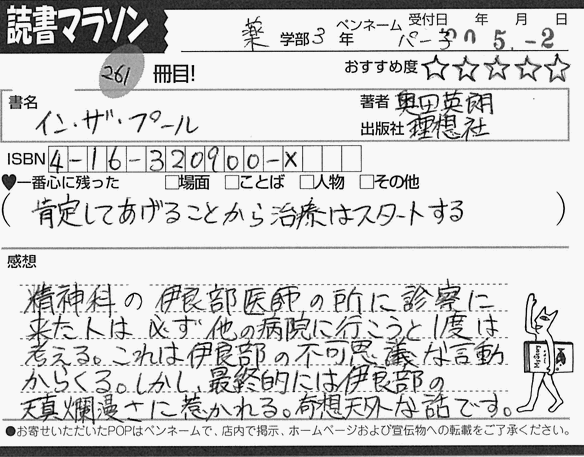 読書マラソン
薬 学部 3 年 ペンネーム パー子 受付日 年 月 日
05. -2
261 冊目! おすすめ度 ☆☆☆☆☆
書名 イン・ザ・プール
著者 奥田英朗
出版社 理想社
ISBN 4-16-320900-X
♥一番心に残った □場面 □ことば □人物 □その他
(肯定してあげることから治療はスタートする)
感想
精神科の伊良部医師の所に診察に
来た人は必ず他の病院に行こうと1度は
考える。これは伊良部の不可思議な言動
からくる。しかし、最終的には伊良部の
天真爛漫さに惹かれる。奇想天外な話です。
●お寄せいただいたPOPはペンネームで、店内で掲示、ホームページおよび宣伝物への転載をご了承ください。